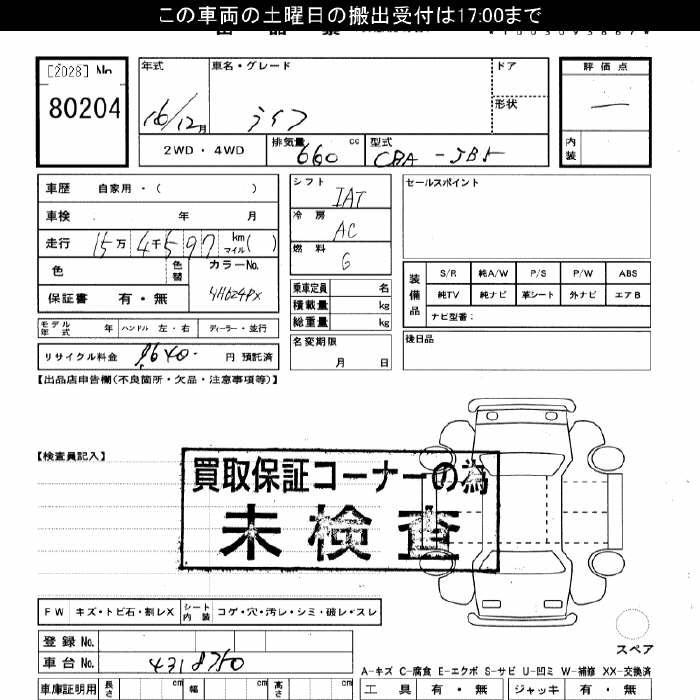 この車両の土曜日の搬出受付は17:00まで
[2028] No
80204
年式 車名・グレード ドア 評価点
16/12月 ライフ 形状 —
2WD・4WD 排気量 660 cc 型式 CBA-JB5 内装
車歴 自家用・( ) シフト IAT セールスポイント
車検 年 月 冷房 AC
走行 15万4千597 km マイル( ) 燃料 G
色 色替 カラーNo. 装備品 S/R 純A/W P/S P/W ABS
保証書 有・無 乗車定員 名 純TV 純ナビ 革シート 外ナビ エアB
積載量 kg ナビ型番:
モデル年式 年 ハンドル 左・右 ディーラー・並行 総重量 kg
リサイクル料金 9640- 円 預託済 名変期限 月 日 後日品
【出品店申告欄(不良箇所・欠品・注意事項等)】
【検査員記入】
買取保証コーナーの為
未検査
FW キズ・トビ石・割レX シート内装 コゲ・穴・汚レ・シミ・破レ・スレ
登録No.
車台No. 4318750 スペア
A-キズ C-腐食 E-エクボ S-サビ U-凹ミ W-補修 XX-交換済
車庫証明用 長さ cm 幅 cm 高さ cm 工具 有・無 ジャッキ 有・無